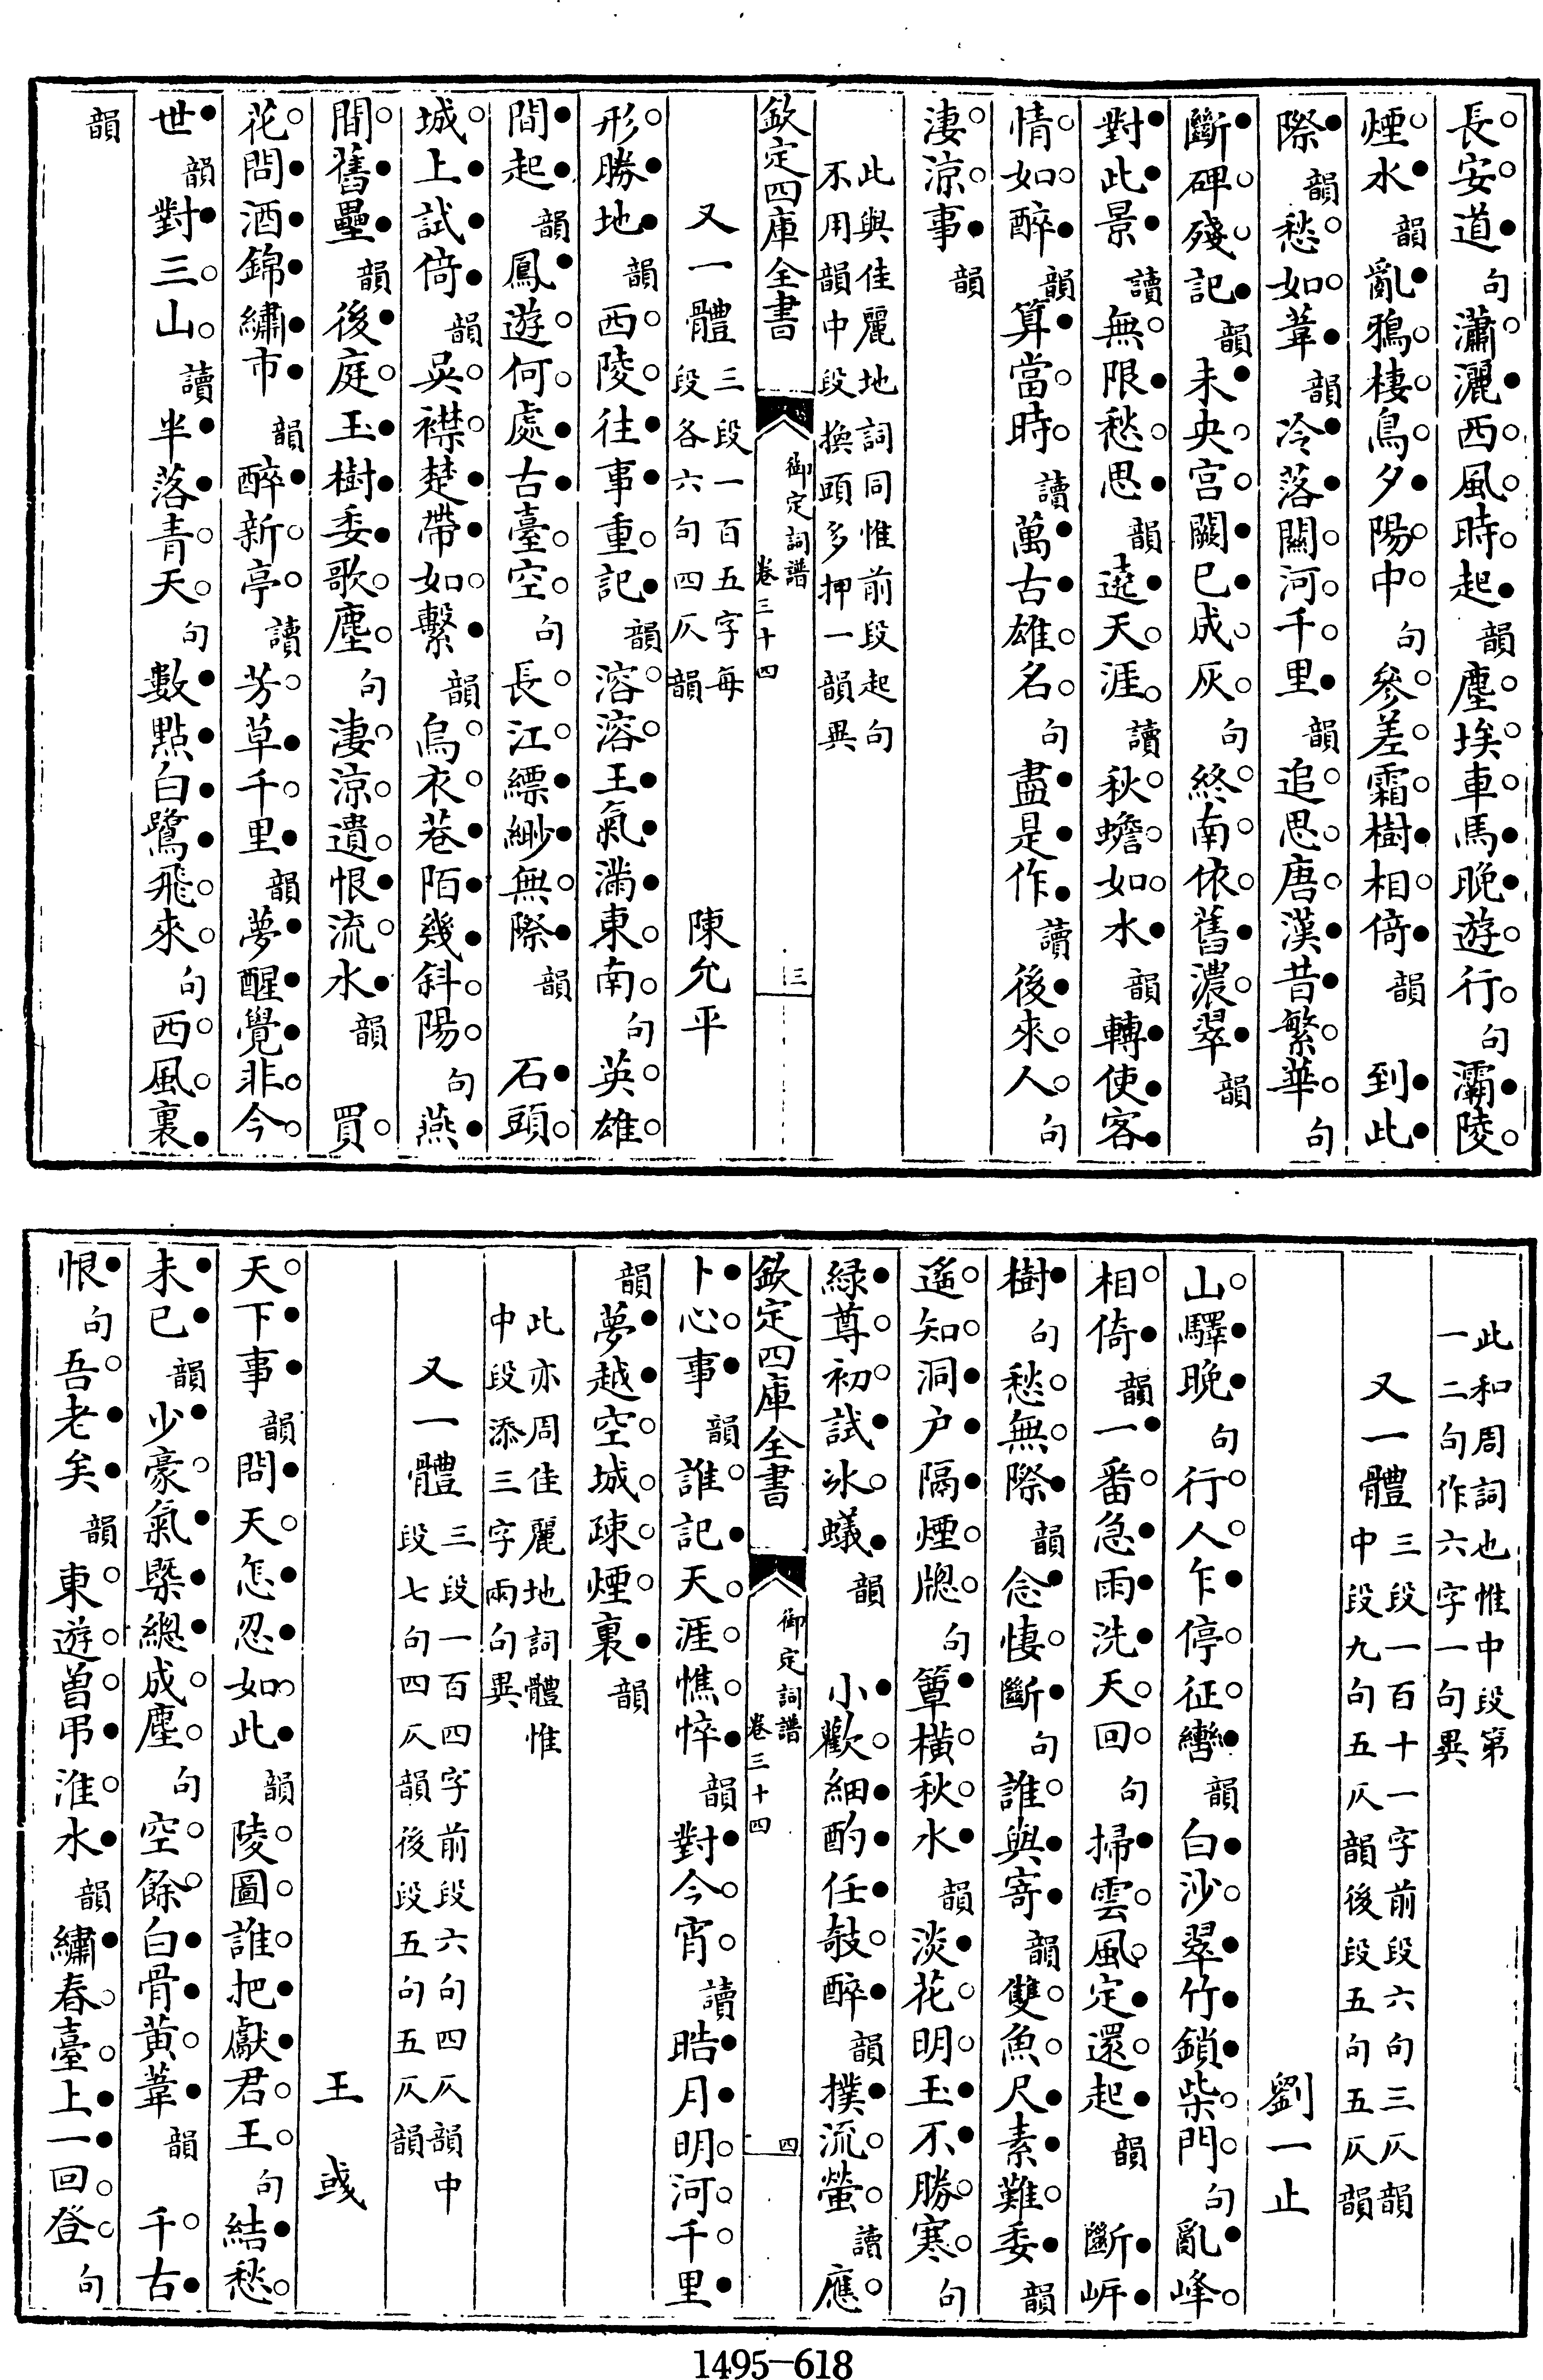 長安道句瀟灑西風時起韻塵埃車馬晚遊行句灞陵
煙水韻亂鴉棲鳥夕陽中句參差霜樹相倚韻　到此
際韻愁如葦韻冷落關河千里韻追思唐漢昔繁華句
斷碑殘記韻未央宮闕已成灰句終南依舊濃翠韻
對此景讀無限愁思韻遶天涯讀秋蟾如水韻轉使客
情如醉韻算當時讀萬古雄名句盡是作讀後來人句
淒涼事韻
此與佳麗地詞同惟前段起句
不用韻中段換頭多押一韻異
欽定四庫全書　御定詞譜　卷三十四　三
又一體三段一百五字每段各六句四仄韻　陳允平
形勝地韻西陵往事重記韻溶溶王氣滿東南句英雄
間起韻鳳遊何處古臺空句長江縹緲無際韻　石頭
城上試倚韻吳襟楚帶如繫韻烏衣巷陌幾斜陽句燕
間舊壘韻後庭玉樹委歌塵句淒涼遺恨流水韻　買
花問酒錦繡市韻醉新亭讀芳草千里韻夢醒覺非今
世韻對三山讀半落青天句數點白鷺飛來句西風裏
韻
此和周詞也惟中段第
一二句作六字一句異
又一體三段一百十一字前段六句三仄韻中段九句五仄韻後段五句五仄韻
劉一止
山驛晚句行人乍停征轡韻白沙翠竹鎖柴門句亂峰
相倚韻一番急雨洗天回句掃雲風定還起韻　斷岍
樹句愁無際韻念悽斷句誰與寄韻雙魚尺素難委韻
遙知洞户隔煙牕句簟橫秋水韻淡花明玉不勝寒句
緑尊初試冰蟻韻　小歡細酌任敧醉韻撲流螢讀應
欽定四庫全書　御定詞譜　卷三十四　四
卜心事韻誰記天涯憔悴韻對今宵讀晧月明河千里
韻夢越空城疎煙裏韻
此亦周佳麗地詞體惟
中段添三字兩句異
又一體三段一百四字前段六句四仄韻中段七句四仄韻後段五句五仄韻
王彧
天下事韻問天怎忍如此韻陵圖誰把獻君王句結愁
未已韻少豪氣槩總成塵句空餘白骨黃葦韻　千古
恨句吾老矣韻東遊曾弔淮水韻繡春臺上一回登句
1495—618